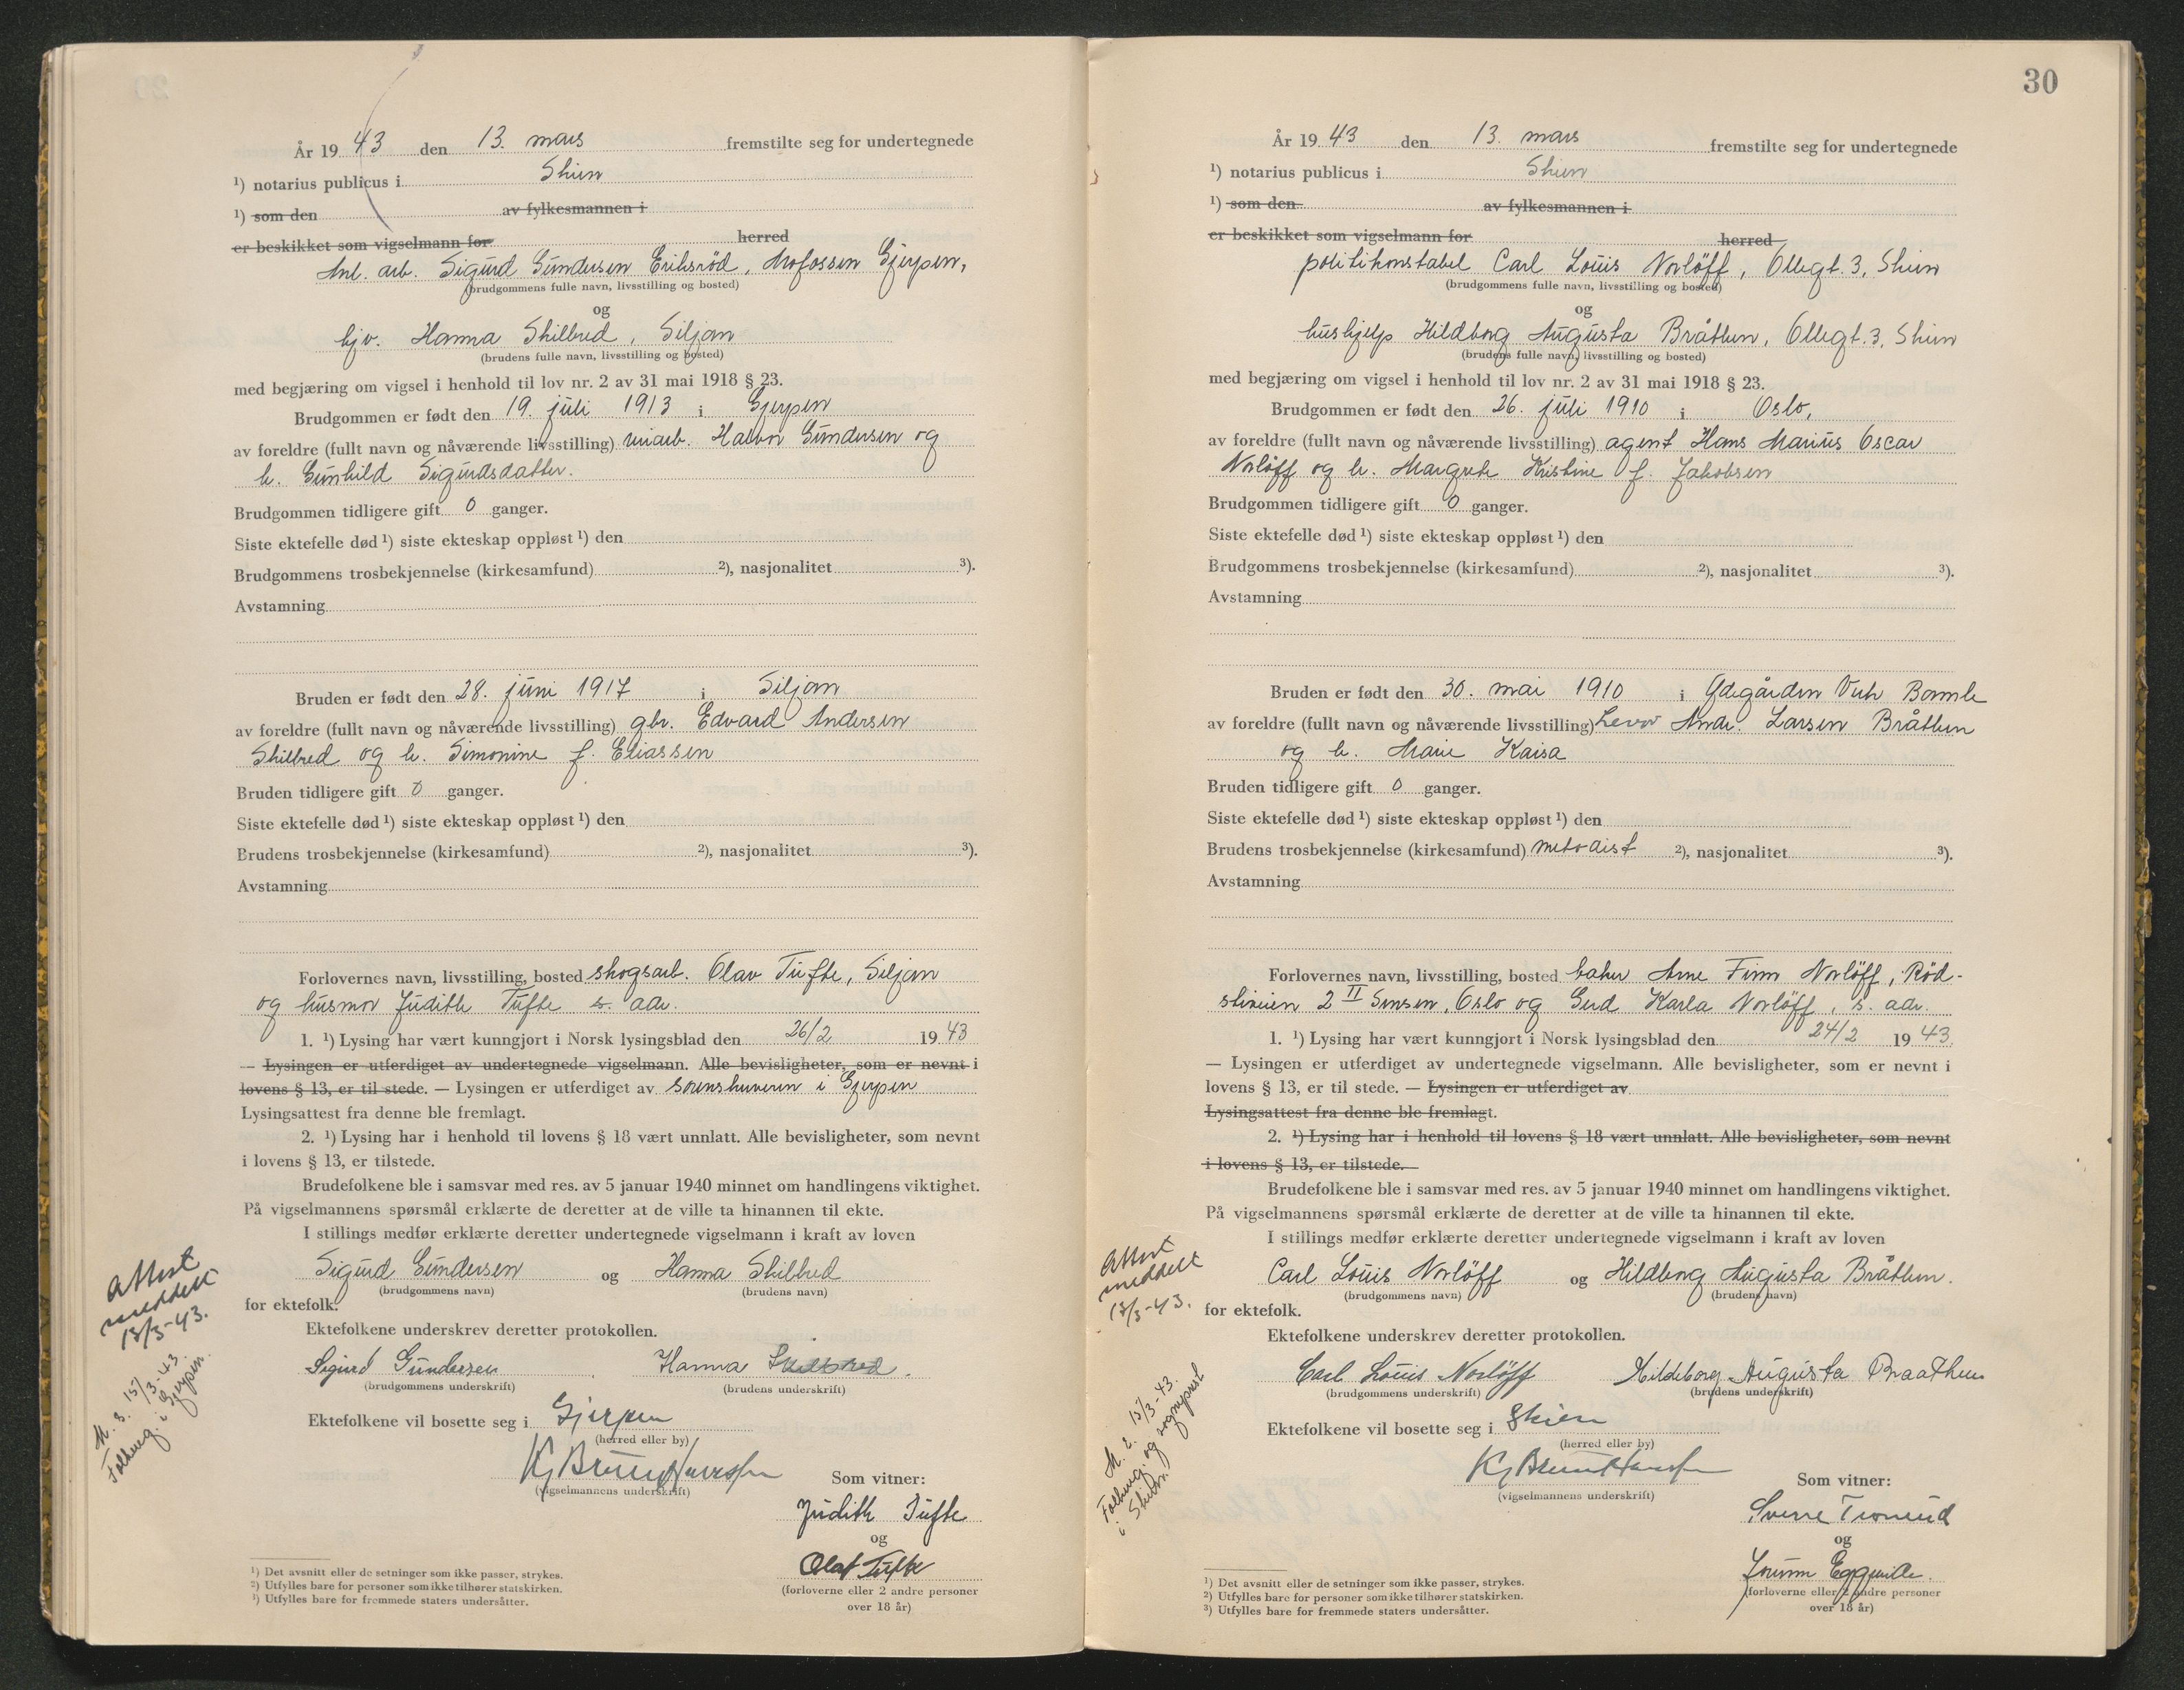 År 19 43 den 13. mars fremstilte seg for undertegnede
¹) notarius publicus i Skien
¹) som den av fylkesmannen i
er beskikket som vigselmann for herred
Anl. arb. Sigurd Gundersen Eriksröd, Mofossen Gjerpen,
(brudgommens fulle navn, livsstilling og bosted)
og
hjv. Hanna Skilbred, Siljan
(brudens fulle navn, livsstilling og bosted)
med begjæring om vigsel i henhold til lov nr. 2 av 31 mai 1918 § 23.
Brudgommen er født den 19. juli 1913 i Gjerpen
av foreldre (fullt navn og nåværende livsstilling) Halvor Gundersen og
h. Gunhild Sigurdsdatter.
Brudgommen tidligere gift 0 ganger.
Siste ektefelle død ¹) siste ekteskap oppløst ¹) den
Brudgommens trosbekjennelse (kirkesamfund) ²), nasjonalitet ³).
Avstamning
Bruden er født den 28. juni 1917 i Siljan
av foreldre (fullt navn og nåværende livsstilling) gbr. Edvard Andersen
Skilbred og h. Simonine f. Eliassen
Bruden tidligere gift 0 ganger.
Siste ektefelle død ¹) siste ekteskap oppløst ¹) den
Brudens trosbekjennelse (kirkesamfund) ²), nasjonalitet ³).
Avstamning
Forlovernes navn, livsstilling, bosted skogsarb. Olav Tufte, Siljan
og husmor Judith Tufte s. adr.
1. ¹) Lysing har vært kunngjort i Norsk lysingsblad den 26/2 19 43
— Lysingen er utferdiget av undertegnede vigselmann. Alle bevisligheter, som er nevnt i
lovens § 13, er til stede. — Lysingen er utferdiget av sorenskriveren i Gjerpen
Lysingsattest fra denne ble fremlagt.
2. ¹) Lysing har i henhold til lovens § 18 vært unnlatt. Alle bevisligheter, som nevnt
i lovens § 13, er tilstede.
Brudefolkene ble i samsvar med res. av 5 januar 1940 minnet om handlingens viktighet.
På vigselmannens spørsmål erklærte de deretter at de ville ta hinannen til ekte.
I stillings medfør erklærte deretter undertegnede vigselmann i kraft av loven
Sigurd Gundersen og Hanna Skilbred
(brudgommens navn) (brudens navn)
for ektefolk.
Ektefolkene underskrev deretter protokollen.
Sigurd Gundersen Hanna Skilbred.
(brudgommens underskrift) (brudens underskrift)
Ektefolkene vil bosette seg i Gjerpen
(herred eller by)
(vigselmannens underskrift)
Som vitner:
Judith Tufte
og
Olaf Tufte
(forloverne eller 2 andre personer
over 18 år)
Attest
meddelt
13/3-43.
M. s. 15/3-43.
Folkereg. i Gjerpen.
¹) Det avsnitt eller de setninger som ikke passer, strykes.
²) Utfylles bare for personer som ikke tilhører statskirken.
³) Utfylles bare for fremmede staters undersåtter.
30
År 19 43 den 13. mars fremstilte seg for undertegnede
¹) notarius publicus i Skien
¹) som den av fylkesmannen i
er beskikket som vigselmann for herred
politikonstabel Carl Louis Norlöff, Ollegt. 3, Skien
(brudgommens fulle navn, livsstilling og bosted)
og
hushjelp Hildborg Augusta Bråthen, Ollegt. 3, Skien
(brudens fulle navn, livsstilling og bosted)
med begjæring om vigsel i henhold til lov nr. 2 av 31 mai 1918 § 23.
Brudgommen er født den 26. juli 1910 i Oslo,
av foreldre (fullt navn og nåværende livsstilling) agent Hans Marius Oscar
Norlöff og h. Margrete Kristine f. Jakobsen
Brudgommen tidligere gift 0 ganger.
Siste ektefelle død ¹) siste ekteskap oppløst ¹) den
Brudgommens trosbekjennelse (kirkesamfund) ²), nasjonalitet ³).
Avstamning
Bruden er født den 30. mai 1910 i Ødegården Verk Bamle
av foreldre (fullt navn og nåværende livsstilling) Andr. Larsen Bråthen
og h. Marie Kaisa
Bruden tidligere gift 0 ganger.
Siste ektefelle død ¹) siste ekteskap oppløst ¹) den
Brudens trosbekjennelse (kirkesamfund) metodist ²), nasjonalitet ³).
Avstamning
Forlovernes navn, livsstilling, bosted baker Arne Finn Norlöff, Röd-
2 II Sinsen, Oslo og Gerd Karla Norlöff, s. adr.
1. ¹) Lysing har vært kunngjort i Norsk lysingsblad den 24/2 19 43.
— Lysingen er utferdiget av undertegnede vigselmann. Alle bevisligheter, som er nevnt i
lovens § 13, er til stede. — Lysingen er utferdiget av
Lysingsattest fra denne ble fremlagt.
2. ¹) Lysing har i henhold til lovens § 18 vært unnlatt. Alle bevisligheter, som nevnt
i lovens § 13, er tilstede.
Brudefolkene ble i samsvar med res. av 5 januar 1940 minnet om handlingens viktighet.
På vigselmannens spørsmål erklærte de deretter at de ville ta hinannen til ekte.
I stillings medfør erklærte deretter undertegnede vigselmann i kraft av loven
Carl Louis Norlöff og Hildborg Augusta Bråthen.
(brudgommens navn) (brudens navn)
for ektefolk.
Ektefolkene underskrev deretter protokollen.
Carl Louis Norlöff Hildeborg Augusta Braathen
(brudgommens underskrift) (brudens underskrift)
Ektefolkene vil bosette seg i Skien
(herred eller by)
(vigselmannens underskrift)
Som vitner:
Sverre
og
(forloverne eller 2 andre personer
over 18 år)
Attest
meddelt
13/3-43.
M. s. 15/3-43.
Folkereg. og sogneprest
i Skien.
¹) Det avsnitt eller de setninger som ikke passer, strykes.
²) Utfylles bare for personer som ikke tilhører statskirken.
³) Utfylles bare for fremmede staters undersåtter.